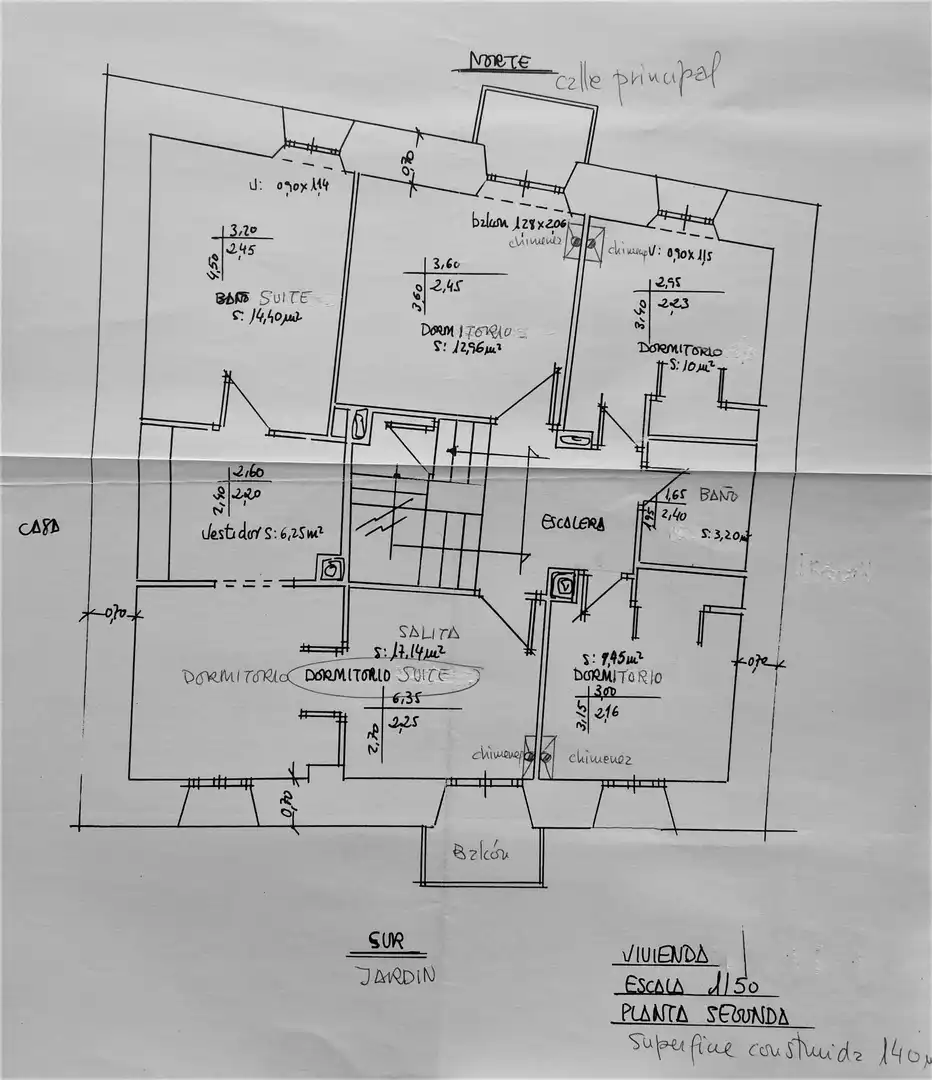 NORTE
calle principal
0,70
V: 0,90x1,14
3,20
2,45
4,50
BAÑO SUITE
S: 14,40 m²
balcon 1,28x2,06
chimenea
3,60
2,45
3,60
DORMITORIO
S: 12,96 m²
V: 0,90x1,15
2,95
2,23
3,40
DORMITORIO
S: 10 m²
2,60
2,20
2,40
Vestidor S: 6,25 m²
ESCALERA
1,65
2,40
1,95
BAÑO
S: 3,20 m²
CASA
0,70
SALITA
S: 17,14 m²
DORMITORIO
DORMITORIO SUITE
6,35
2,25
2,70
chimenea
S: 9,45 m²
DORMITORIO
3,00
2,16
3,15
chimenea
0,70
0,70
Balcón
SUR
JARDIN
VIVIENDA
ESCALA 1/50
PLANTA SEGUNDA
superficie construida 140